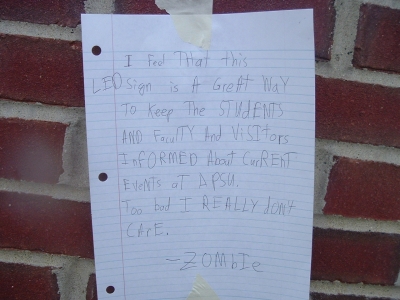 I Feel That this
LED Sign is A Great Way
To Keep The STUdENTS
AND FacuLTY And VisITors
InFORMED About CurRENT
Events at APSU.
Too bad I REALLY don't
CArE.
-ZOMbIe